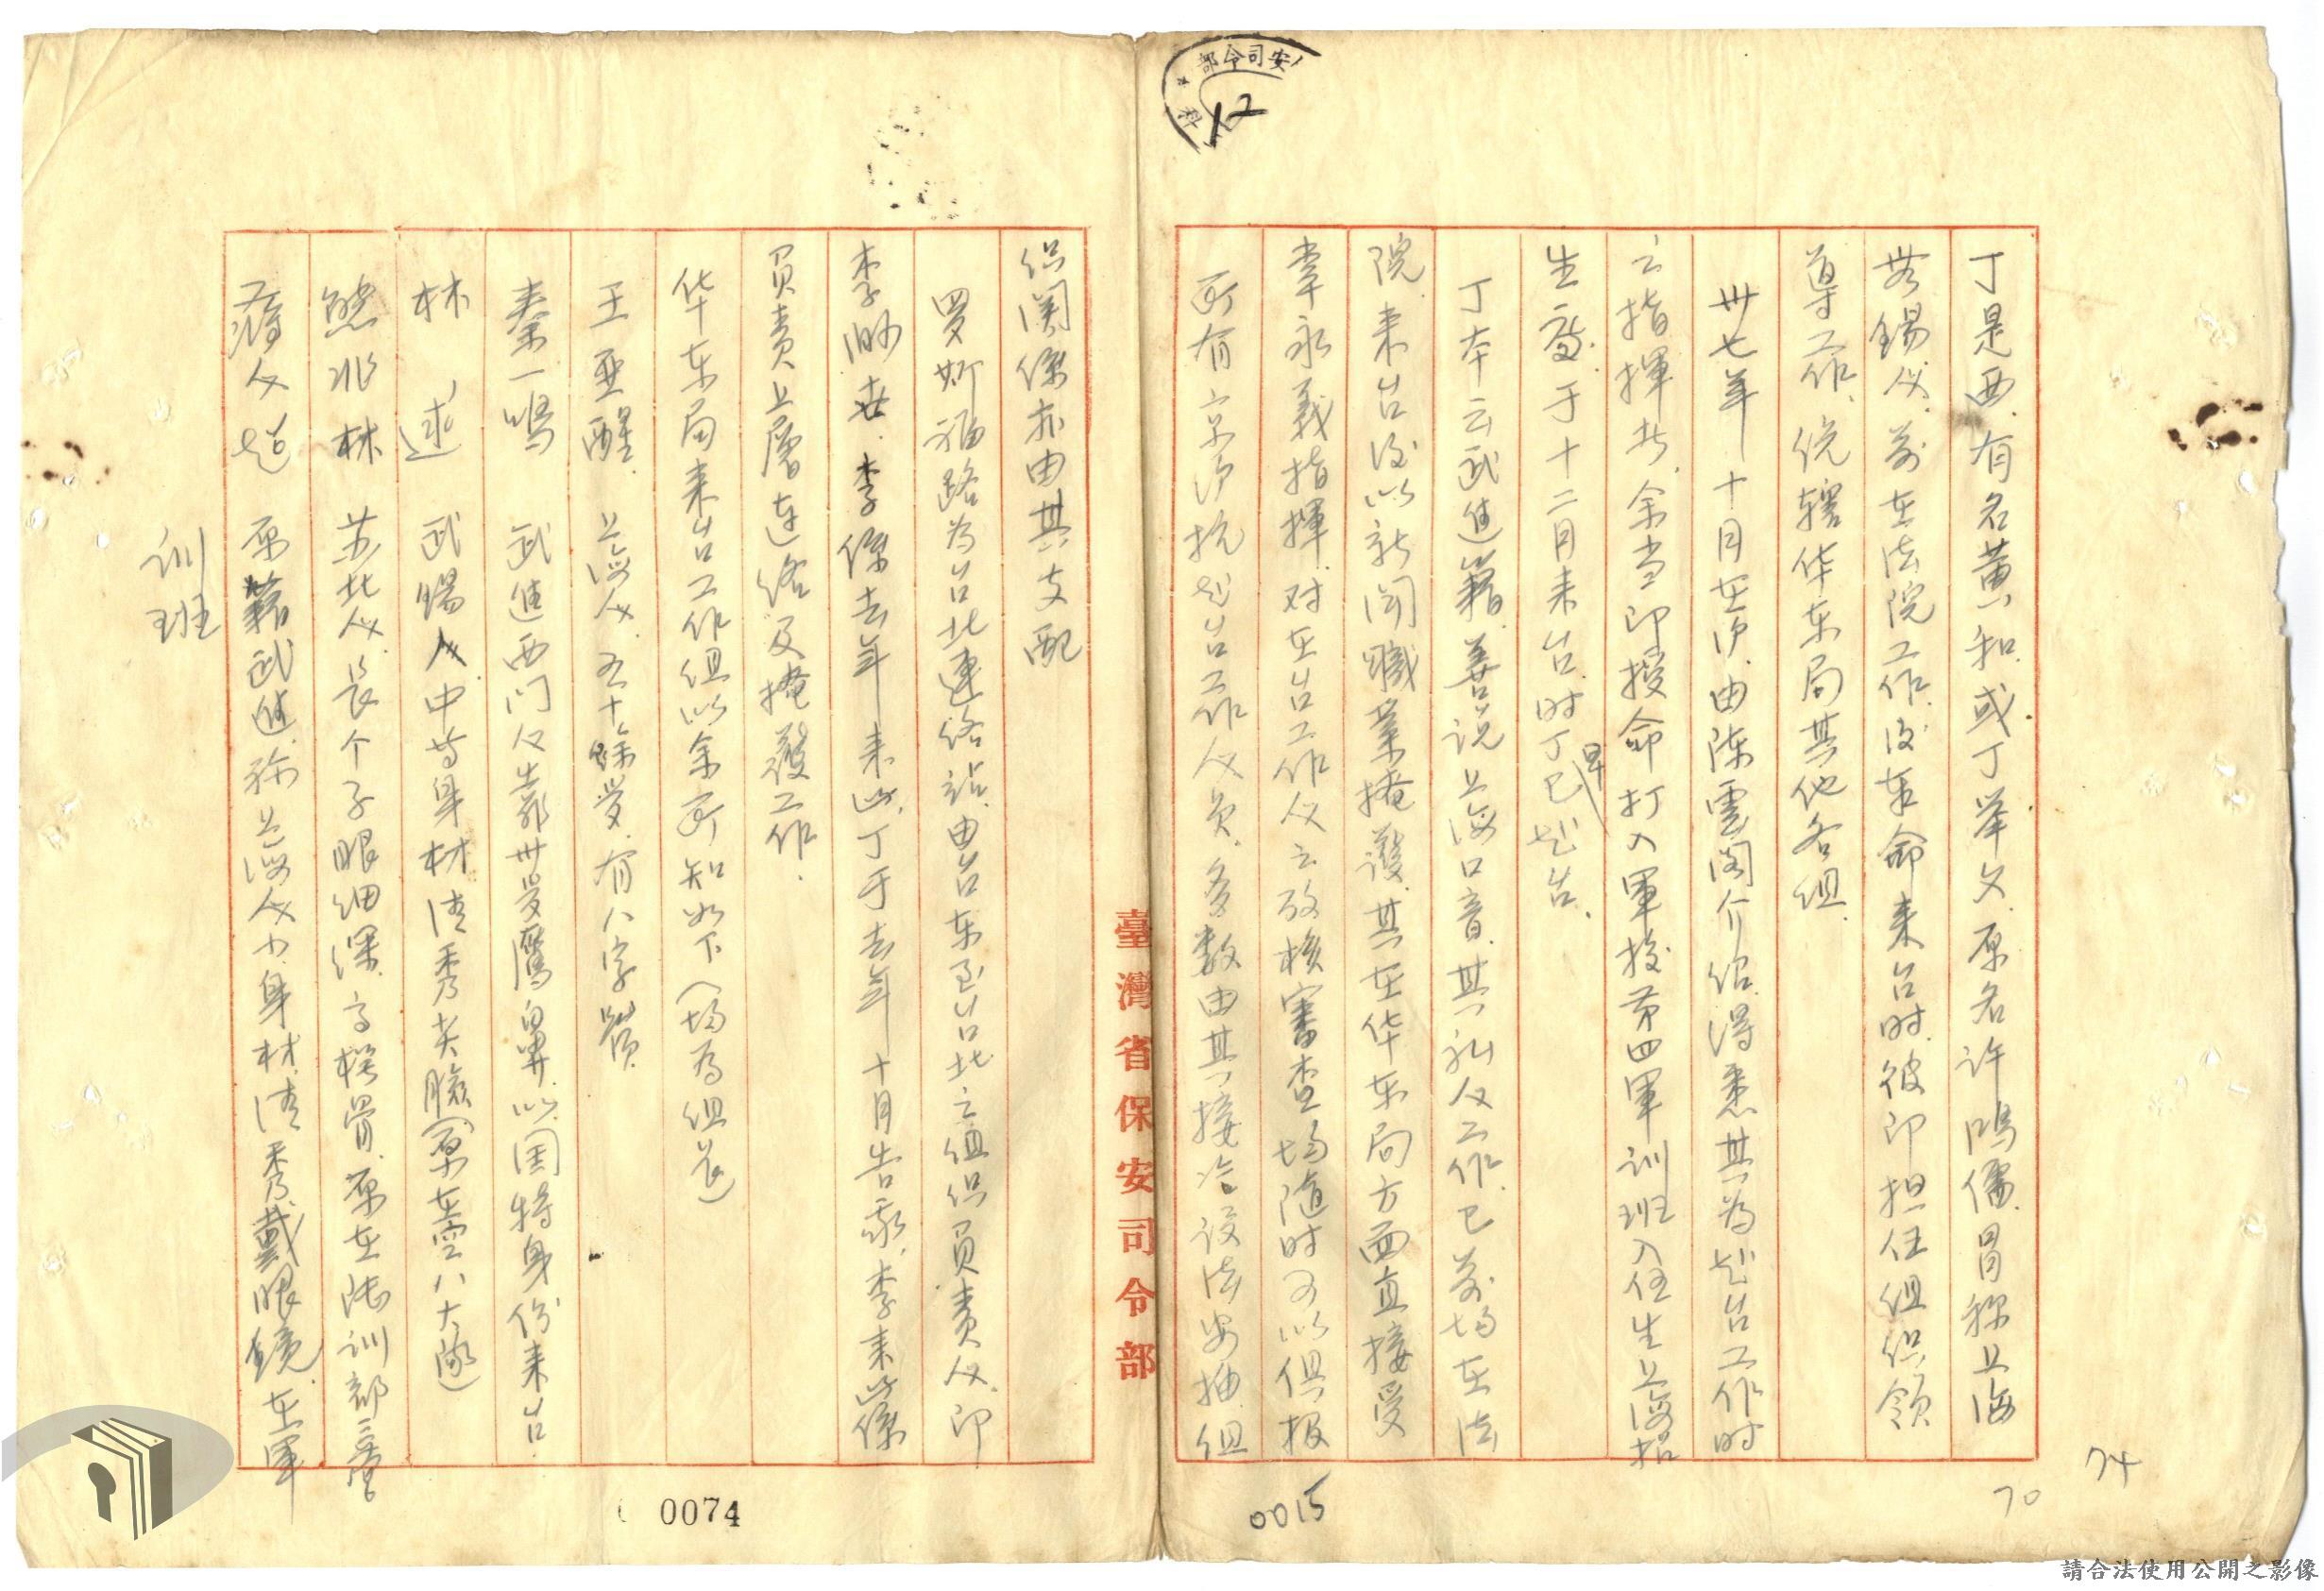 安司令部
科
12
丁是西.有名黄和.或丁举文.原名许鸣儒.冒称上海
无锡人.前在法院工作.后奉命来台时.彼即担任组织领
导工作.统辖华东局其他各组.
卅七年十月在沪.由陈雲阁介绍.得悉其为赴台工作时
之指揮者.余当即授命打入軍校第四軍训班入伍生上海招
生處.于十二月来台.时丁早已赴台.
丁本云武進籍.善说上海口音.其私人工作.已前均在法
院.来台後以新闻職業掩護.其在华东局方面直接受
李永義指揮.对在台工作人之考核審查均随时可以俱报
所有京沪抗赴台工作人员.多数由其接洽设法安插.组
织関係亦由其支配
罗斯福路為台北連络站.由台东至台北之组织負责人.即
李渺世.李係去年来此.丁于去年十月告我.李来此係
負责上層连络及掩護工作.
华东局来台工作组以余所知如下(均為组長)
王亜醒.上海人.五十餘岁.有八字鬚
秦一鳴 武進西门人.年卅岁鷹鼻.以国特身份来台.
林 述 武锡人中等身材清秀尖臉(原在空八大隊)
熊兆林 苏北人.長个子眼细深.高樑骨.原在陆训部三營
蒋人超 原籍武進.称上海人.小身材.清秀.戴眼鏡.在軍
训班
臺灣省保安司令部
0074
0015
70
74
請合法使用公開之影像